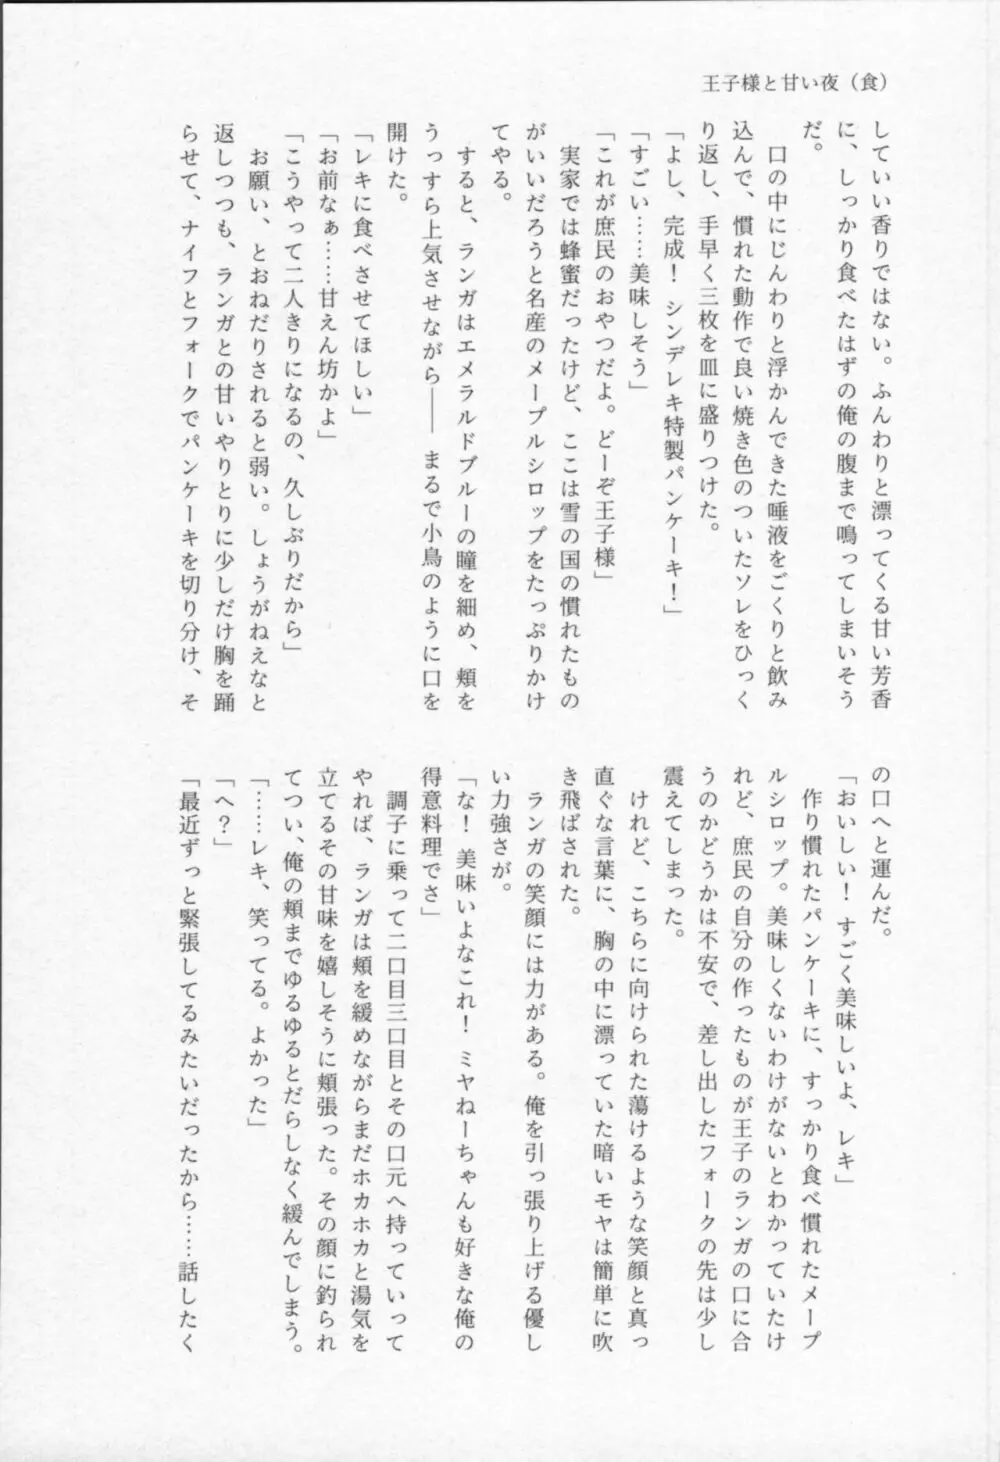 王子様と甘い夜（食）
していい香りではない。ふんわりと漂ってくる甘い芳香
に、しっかり食べたはずの俺の腹まで鳴ってしまいそう
だ。
　口の中にじんわりと浮かんできた唾液をごくりと飲み
込んで、慣れた動作で良い焼き色のついたソレをひっく
り返し、手早く三枚を皿に盛りつけた。
「よし、完成！　シンデレキ特製パンケーキ！」
「すごい……美味しそう」
「これが庶民のおやつだよ。どーぞ王子様」
　実家では蜂蜜だったけど、ここは雪の国の慣れたもの
がいいだろうと名産のメープルシロップをたっぷりかけ
てやる。
　すると、ランガはエメラルドブルーの瞳を細め、頬を
うっすら上気させながら――　まるで小鳥のように口を
開けた。
「レキに食べさせてほしい」
「お前なぁ……甘えん坊かよ」
「こうやって二人きりになるの、久しぶりだから」
　お願い、とおねだりされると弱い。しょうがねえなと
返しつつも、ランガとの甘いやりとりに少しだけ胸を踊
らせて、ナイフとフォークでパンケーキを切り分け、そ
の口へと運んだ。
「おいしい！　すごく美味しいよ、レキ」
　作り慣れたパンケーキに、すっかり食べ慣れたメープ
ルシロップ。美味しくないわけがないとわかっていたけ
れど、庶民の自分の作ったものが王子のランガの口に合
うのかどうかは不安で、差し出したフォークの先は少し
震えてしまった。
　けれど、こちらに向けられた蕩けるような笑顔と真っ
直ぐな言葉に、胸の中に漂っていた暗いモヤは簡単に吹
き飛ばされた。
　ランガの笑顔には力がある。俺を引っ張り上げる優し
い力強さが。
「な！　美味いよなこれ！　ミヤねーちゃんも好きな俺の
得意料理でさ」
　調子に乗って二口目三口目とその口元へ持っていって
やれば、ランガは頬を緩めながらまだホカホカと湯気を
立てるその甘味を嬉しそうに頬張った。その顔に釣られ
てつい、俺の頬までゆるゆるとだらしなく緩んでしまう。
「……レキ、笑ってる。よかった」
「へ？」
「最近ずっと緊張してるみたいだったから……話したく